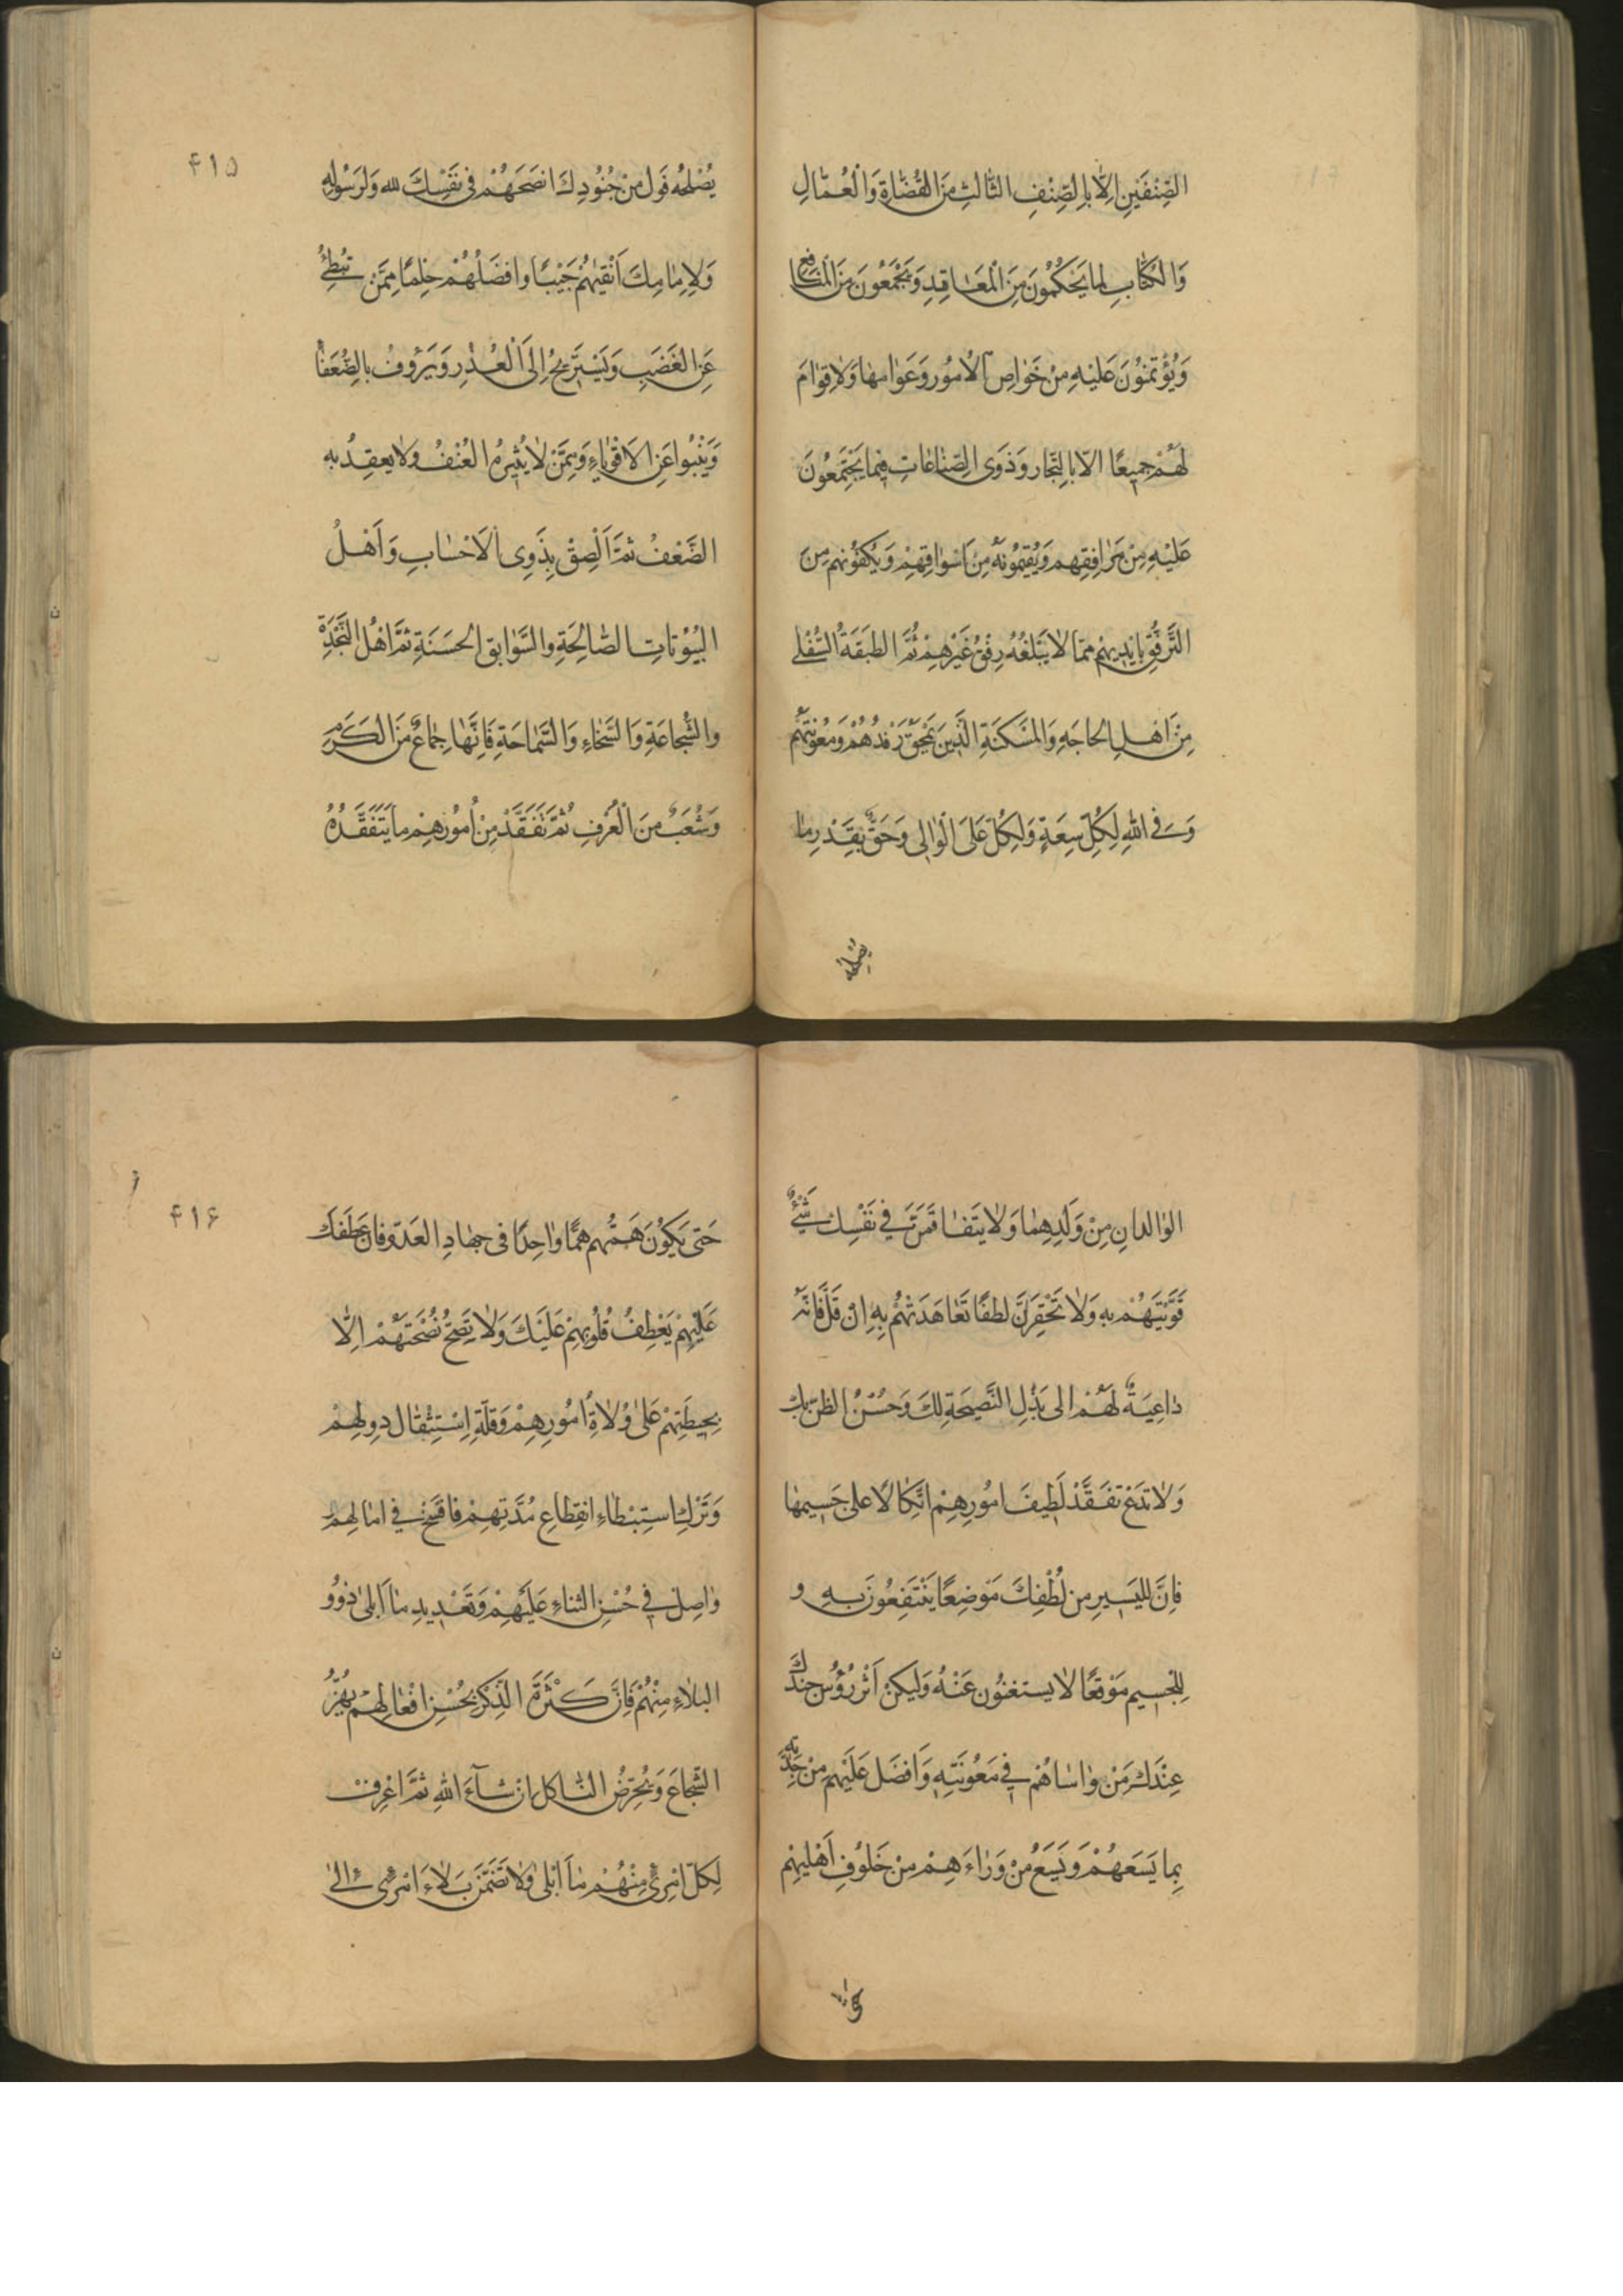 الصِّنْفَيْنِ اِلَّا بِالصِّنْفِ الثَّالِثِ مِنَ الْقُضَاةِ وَالْعُمَّالِ
وَالْكُتَّابِ لِمَا يَحْكُمُونَ مِنَ الْمَعَاقِدِ وَيَجْمَعُونَ مِنَ الْمَنَافِعِ
وَيُؤْتَمَنُونَ عَلَيْهِ مِنْ خَوَاصِّ الْاُمُورِ وَعَوَامِهَا وَلَا قِوَامَ
لَهُمْ جَمِيعًا اِلَّا بِالتُّجَّارِ وَذَوِي الصِّنَاعَاتِ فِيمَا يَجْتَمِعُونَ
عَلَيْهِ مِنْ مَرَافِقِهِمْ وَيُقِيمُونَهُ مِنْ اَسْوَاقِهِمْ وَيَكْفُونَهُمْ مِنَ
التَّرَفُّقِ بِاَيْدِيهِمْ مِمَّا لَا يَبْلُغُهُ رِفْقُ غَيْرِهِمْ ثُمَّ الطَّبَقَةُ السُّفْلَى
مِنْ اَهْلِ الْحَاجَةِ وَالْمَسْكَنَةِ الَّذِينَ يَحِقُّ رِفْدُهُمْ وَمَعُونَتُهُمْ
وَفِي اللهِ لِكُلٍّ سِعَةٌ وَلِكُلٍّ عَلَى الْوَالِي وَحَقٌّ بِقَدْرِ مَا
يُصْلِحُهُ
۴۱۵
يُصْلِحُهُ فَوَلِّ مِنْ جُنُودِكَ اَنْصَحَهُمْ فِي نَفْسِكَ لِلّهِ وَلِرَسُولِهِ
وَلِاِمَامِكَ اَنْقَيهُمْ جَيْبًا وَاَفْضَلُهُمْ حِلْمًا مِمَّنْ يُبْطِئُ
عَنِ الْغَضَبِ وَيَسْتَرِيحُ اِلَى الْعُذْرِ وَيَرْؤُفُ بِالضُّعَفَاءِ
وَيَنْبُوا عَنِ الْاَقْوِيَاءِ وَمِمَّنْ لَا يُثِيرُهُ الْعُنْفُ وَلَا يَعْقِدُ بِهِ
الضَّعْفُ ثُمَّ اَلْصِقْ بِذَوِي الْاَحْسَابِ وَاَهْلُ
الْبُيُوتَاتِ الصَّالِحَةِ وَالسَّوَابِقِ الْحَسَنَةِ ثُمَّ اَهْلُ النَّجْدَةِ
وَالشَّجَاعَةِ وَالسَّخَاءِ وَالسَّمَاحَةِ فَاِنَّهَا جِمَاعٌ مِنَ الْكَرَمِ
وَشُعَبٌ مِنَ الْعُرْفِ ثُمَّ تَفَقَّدْ مِنْ اُمُورِهِمْ مَا يَتَفَقَّدُهُ
الْوَالِدَانِ مِنْ وَلَدِهِمَا وَلَا يَتَفَاقَمَنَّ فِي نَفْسِكَ شَيْءٌ
قَوَّيْتَهُمْ بِهِ وَلَا تَحْقِرَنَّ لُطْفًا تَعَاهَدْتَهُمْ بِهِ اِنْ قَلَّ فَاِنَّهُ
دَاعِيَةٌ لَهُمْ اِلَى بَذْلِ النَّصِيحَةِ لَكَ وَحُسْنِ الظَّنِّ بِكَ
وَلَا تَدَعْ تَفَقُّدَ لَطِيفِ اُمُورِهِمْ اتِّكَالًا عَلَى جَسِيمِهَا
فَاِنَّ لِلْيَسِيرِ مِنْ لُطْفِكَ مَوْضِعًا يَنْتَفِعُونَ بِهِ وَ
لِلْجَسِيمِ مَوْقِعًا لَا يَسْتَغْنُونَ عَنْهُ وَلْيَكُنْ اٰثَرُ رُؤُسِ جُنْدِكَ
عِنْدَكَ مَنْ وَاسَاهُمْ فِي مَعُونَتِهِ وَاَفْضَلَ عَلَيْهِمْ مِنْ جِدَتِهِ
بِمَا يَسَعُهُمْ وَيَسَعُ مِنْ وَرَاءَهِمْ مِنْ خُلُوفِ اَهْلِيهِمْ
حَتَّى
۴۱۶
حَتَّى يَكُونَ هَمُّهُمْ هَمًّا وَاحِدًا فِي جِهَادِ الْعَدُوِّ فَاِنَّ عَطْفَكَ
عَلَيْهِمْ يَعْطِفُ قُلُوبَهُمْ عَلَيْكَ وَلَا تَصِحُّ نُصْحَتُهُمْ اِلَّا
بِحِيطَتِهِمْ عَلَى وُلَاةِ اُمُورِهِمْ وَقِلَّةِ اِسْتِثْقَالِ دِوَلِهِمْ
وَتَرْكِ اسْتِبْطَاءِ انْقِطَاعِ مُدَّتِهِمْ فَافْسَحْ فِي اٰمَالِهِمْ
وَاصِلْ فِي حُسْنِ الثَّنَاءِ عَلَيْهِمْ وَتَعْدِيدِ مَا اَبْلَى ذَوُوُ
الْبَلَاءِ مِنْهُمْ فَاِنَّ كَثْرَةَ الذِّكْرِ بِحُسْنِ اَفْعَالِهِمْ تَهُزُّ
الشُّجَاعَ وَتُحَرِّضُ النَّاكِلَ اِنْ شَاءَ اللهُ ثُمَّ اعْرِفْ
لِكُلِّ امْرِئٍ مِنْهُمْ مَا اَبْلَى وَلَا تَضُمَّنَّ بَلَاءَ امْرِئٍ اِلَى